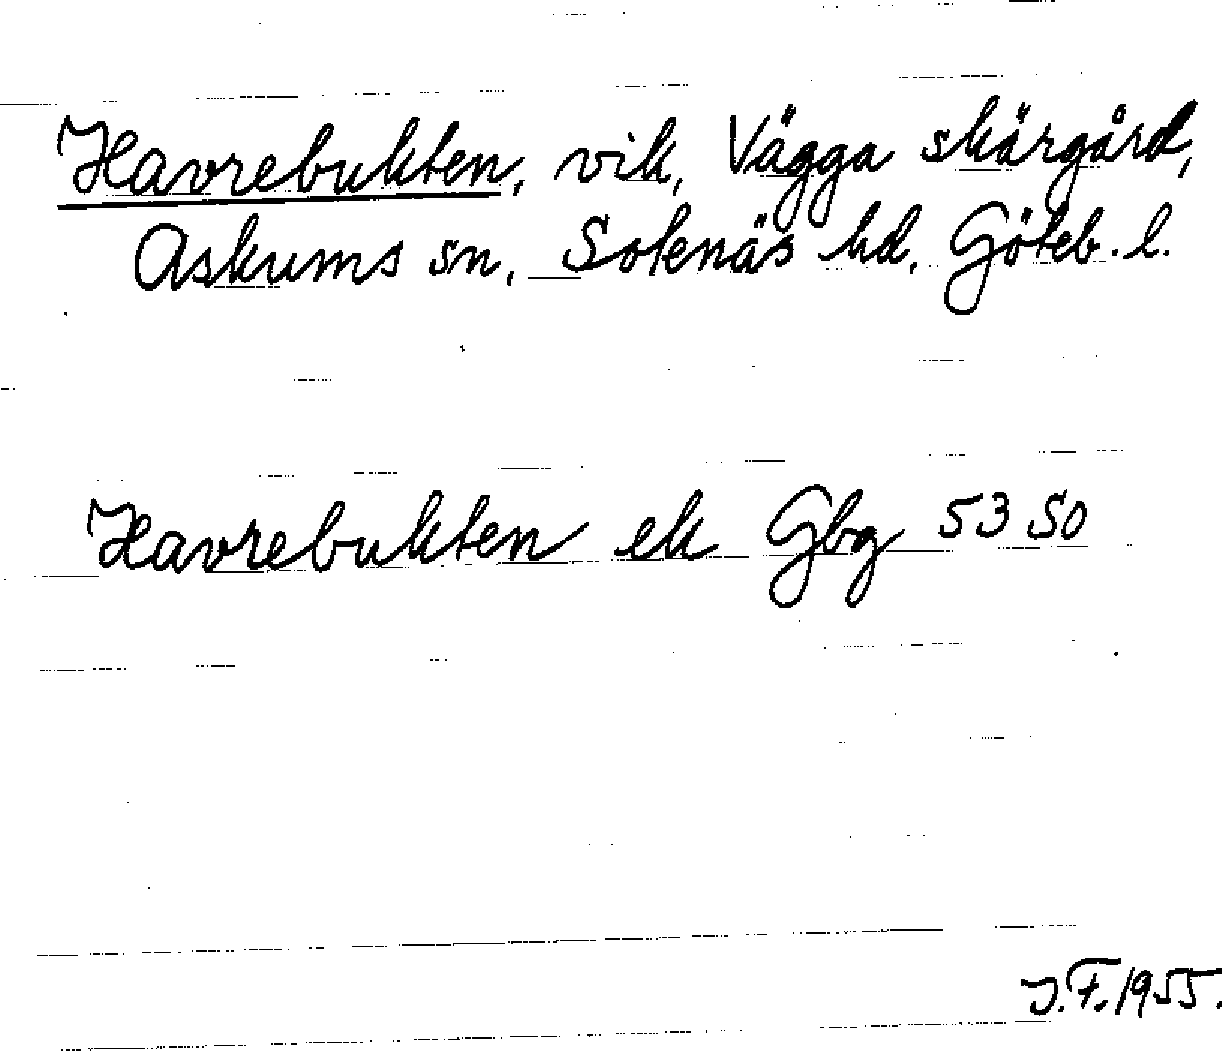 Havrebukten, vik, Vägga skärgård,
Askums sn, Sotenäs hd, Göteb. l.
Havrebukten ek Gbg 53 SO
J.F. 1955.